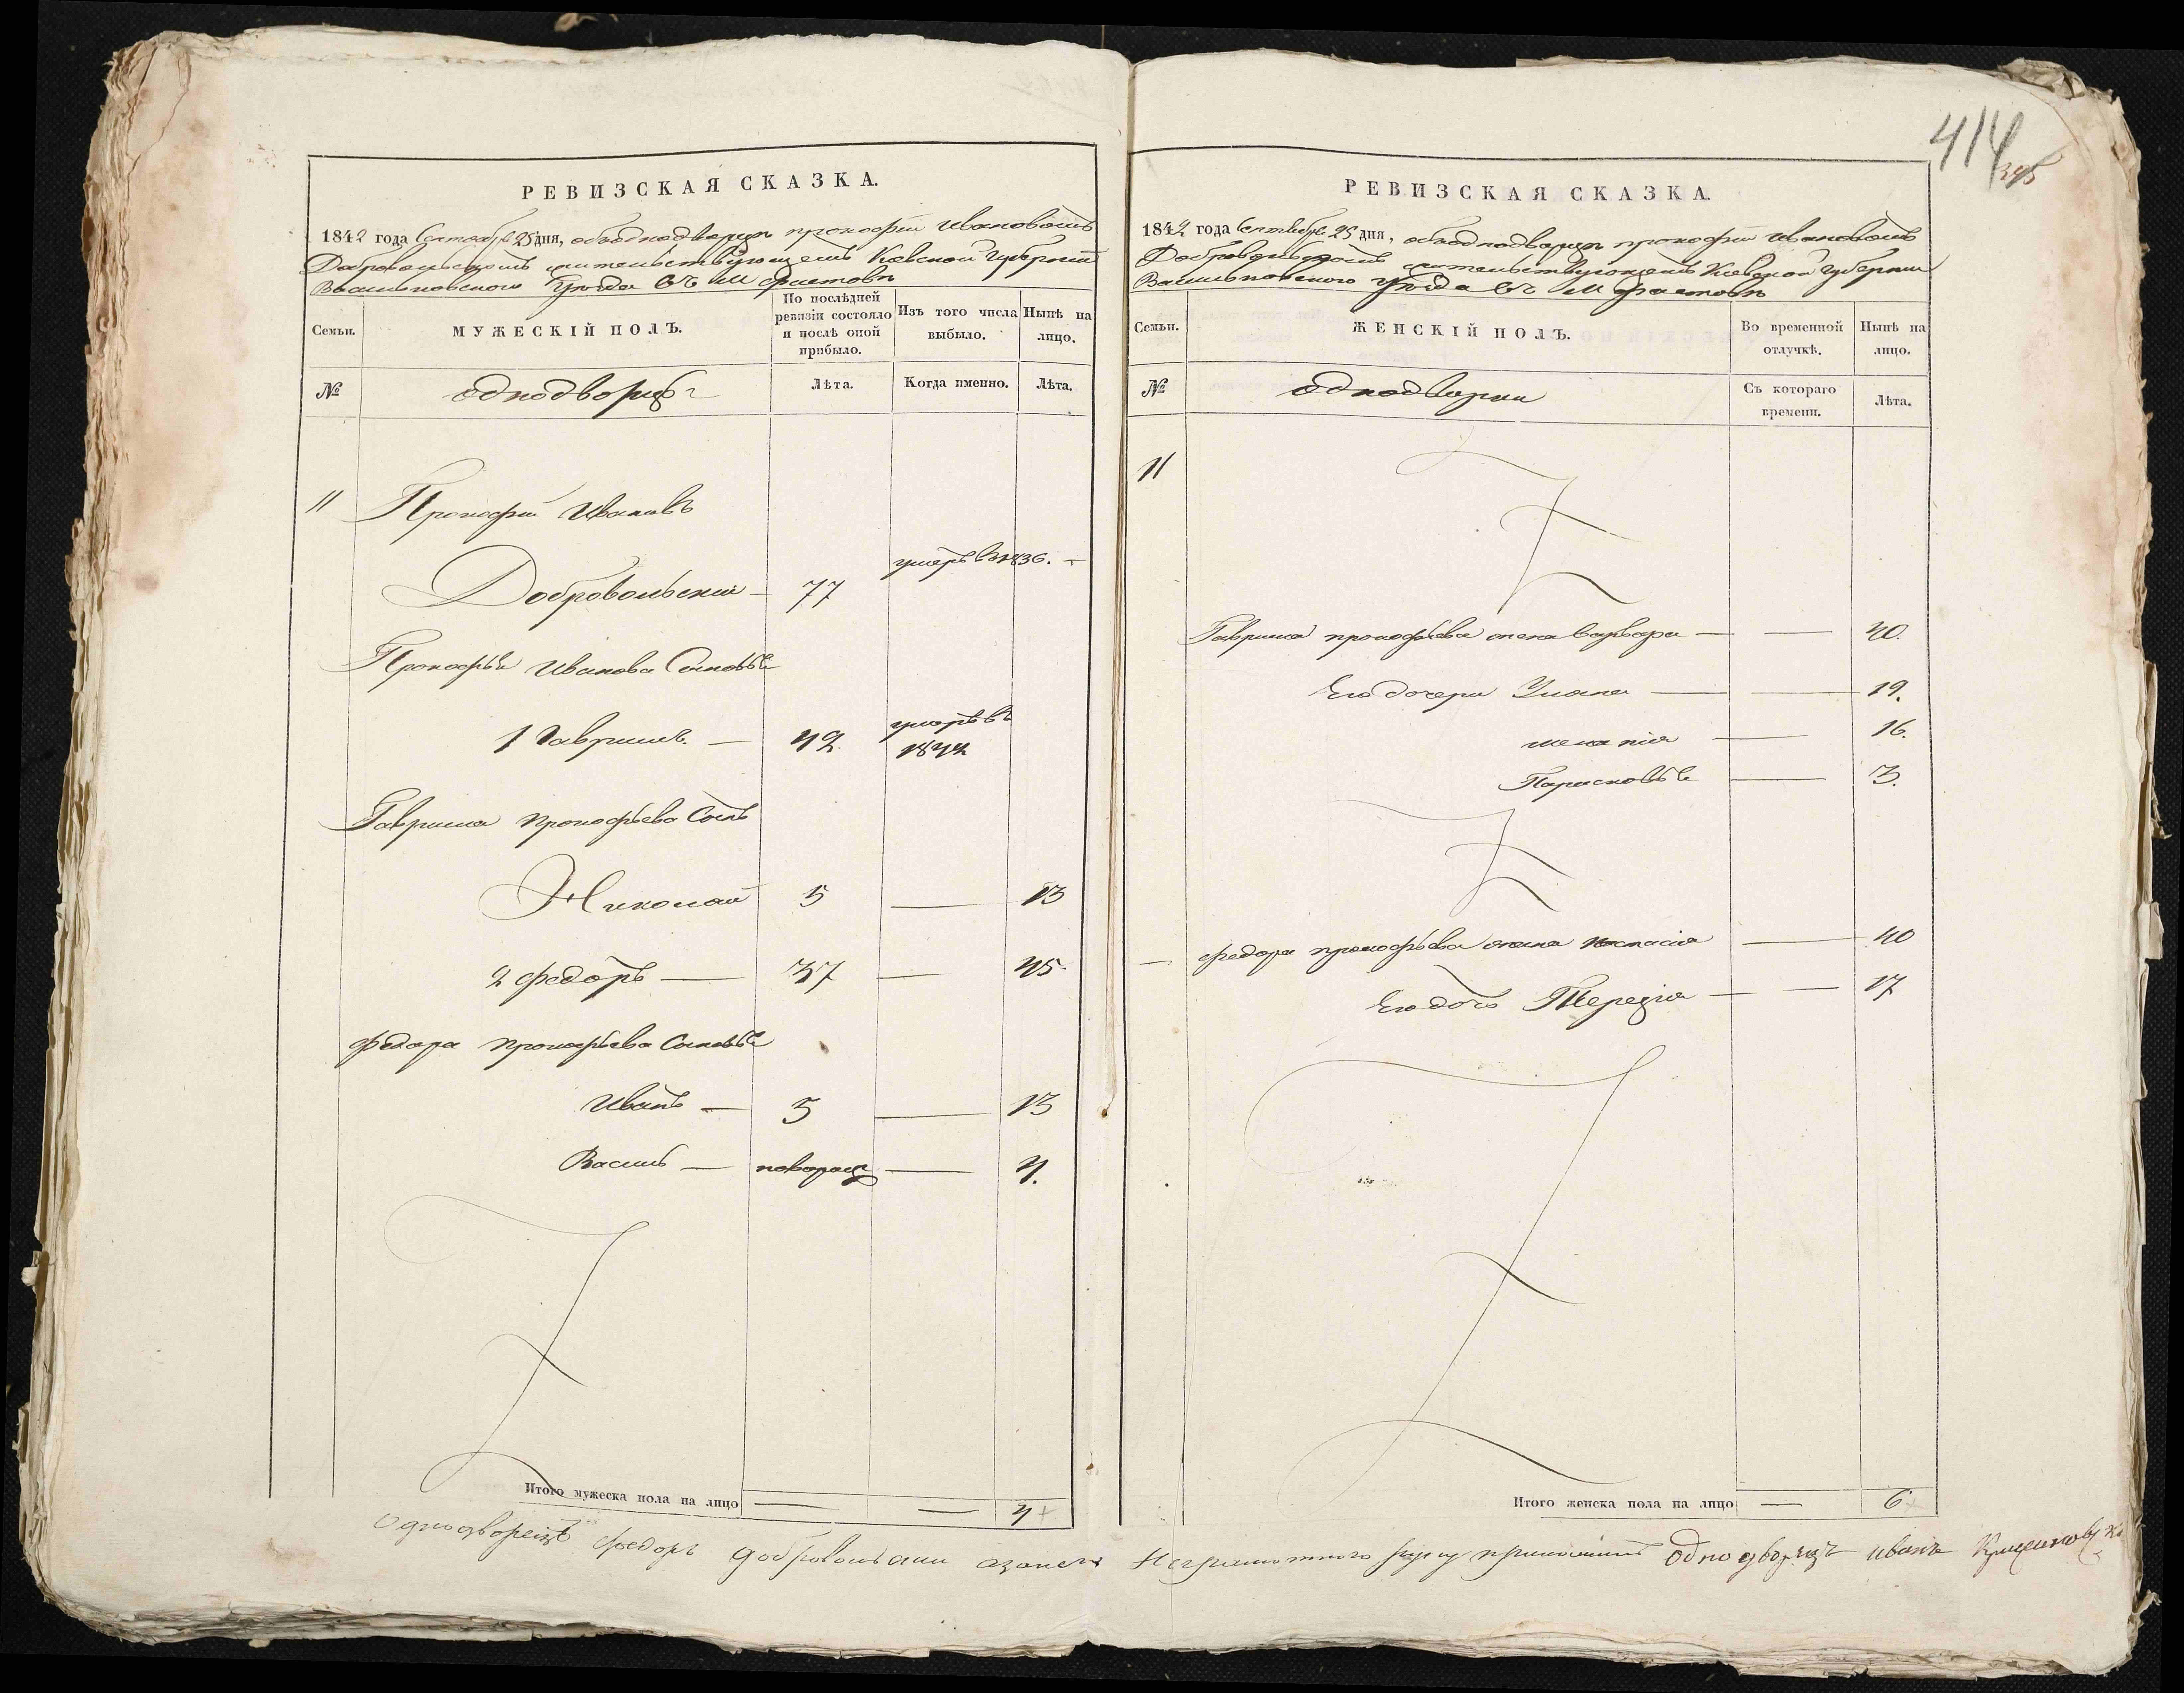 414
РЕВИЗСКАЯ СКАЗКА.
1842 года Сентября 25 дня, объ однодворце прокофiи Ивановомъ
Добровольскомъ жительствующемъ Кіевской Губерніи
Васильковскаго уѣзда въ М Фастовѣ
Семьи.
МУЖЕСКІЙ ПОЛЪ.
По послѣдней ревизіи состояло и послѣ оной прибыло.
Изъ того числа выбыло.
Нынѣ на лицо.
№
однодворцы
Лѣта.
Когда именно.
Лѣта.
11 Прокофій Ивановъ
Добровольскій — 77 умеръ в 1836. —
Прокофья Иванова Сыновья
1 Гаврило. — 42 умеръ въ 1842
Гаврила прокофьева Сынъ
Николай 5 — 13
2 федоръ — 37 — 45.
федора прокофьева Сыновья
Иванъ — 5 — 13
Василь — новорож — 4.
Итого мужеска пола на лицо — — 4
РЕВИЗСКАЯ СКАЗКА.
1842 года Сентября 25 дня, объ однодворце прокофiи Ивановомъ
Добровольскомъ жительствующемъ Кіевской Губерніи
Васильковского уѣзда въ М Фастовѣ
Семьи.
ЖЕНСКІЙ ПОЛЪ.
Во временной отлучкѣ.
Нынѣ на лицо.
№
однодворки
Съ котораго времени.
Лѣта.
11
Гаврила прокофьева жена Варвара — — 40.
Его дочери Уляна — — 19.
меланія — 16.
Парасковья — 3.
— федора прокофьева жена Настасія — 40
Его дочь Терезія — — 17
Итого женска пола на лицо — 6
однодворецъ федоръ добровольски
неграмотного руку приложилъ однодворецъ иванъ